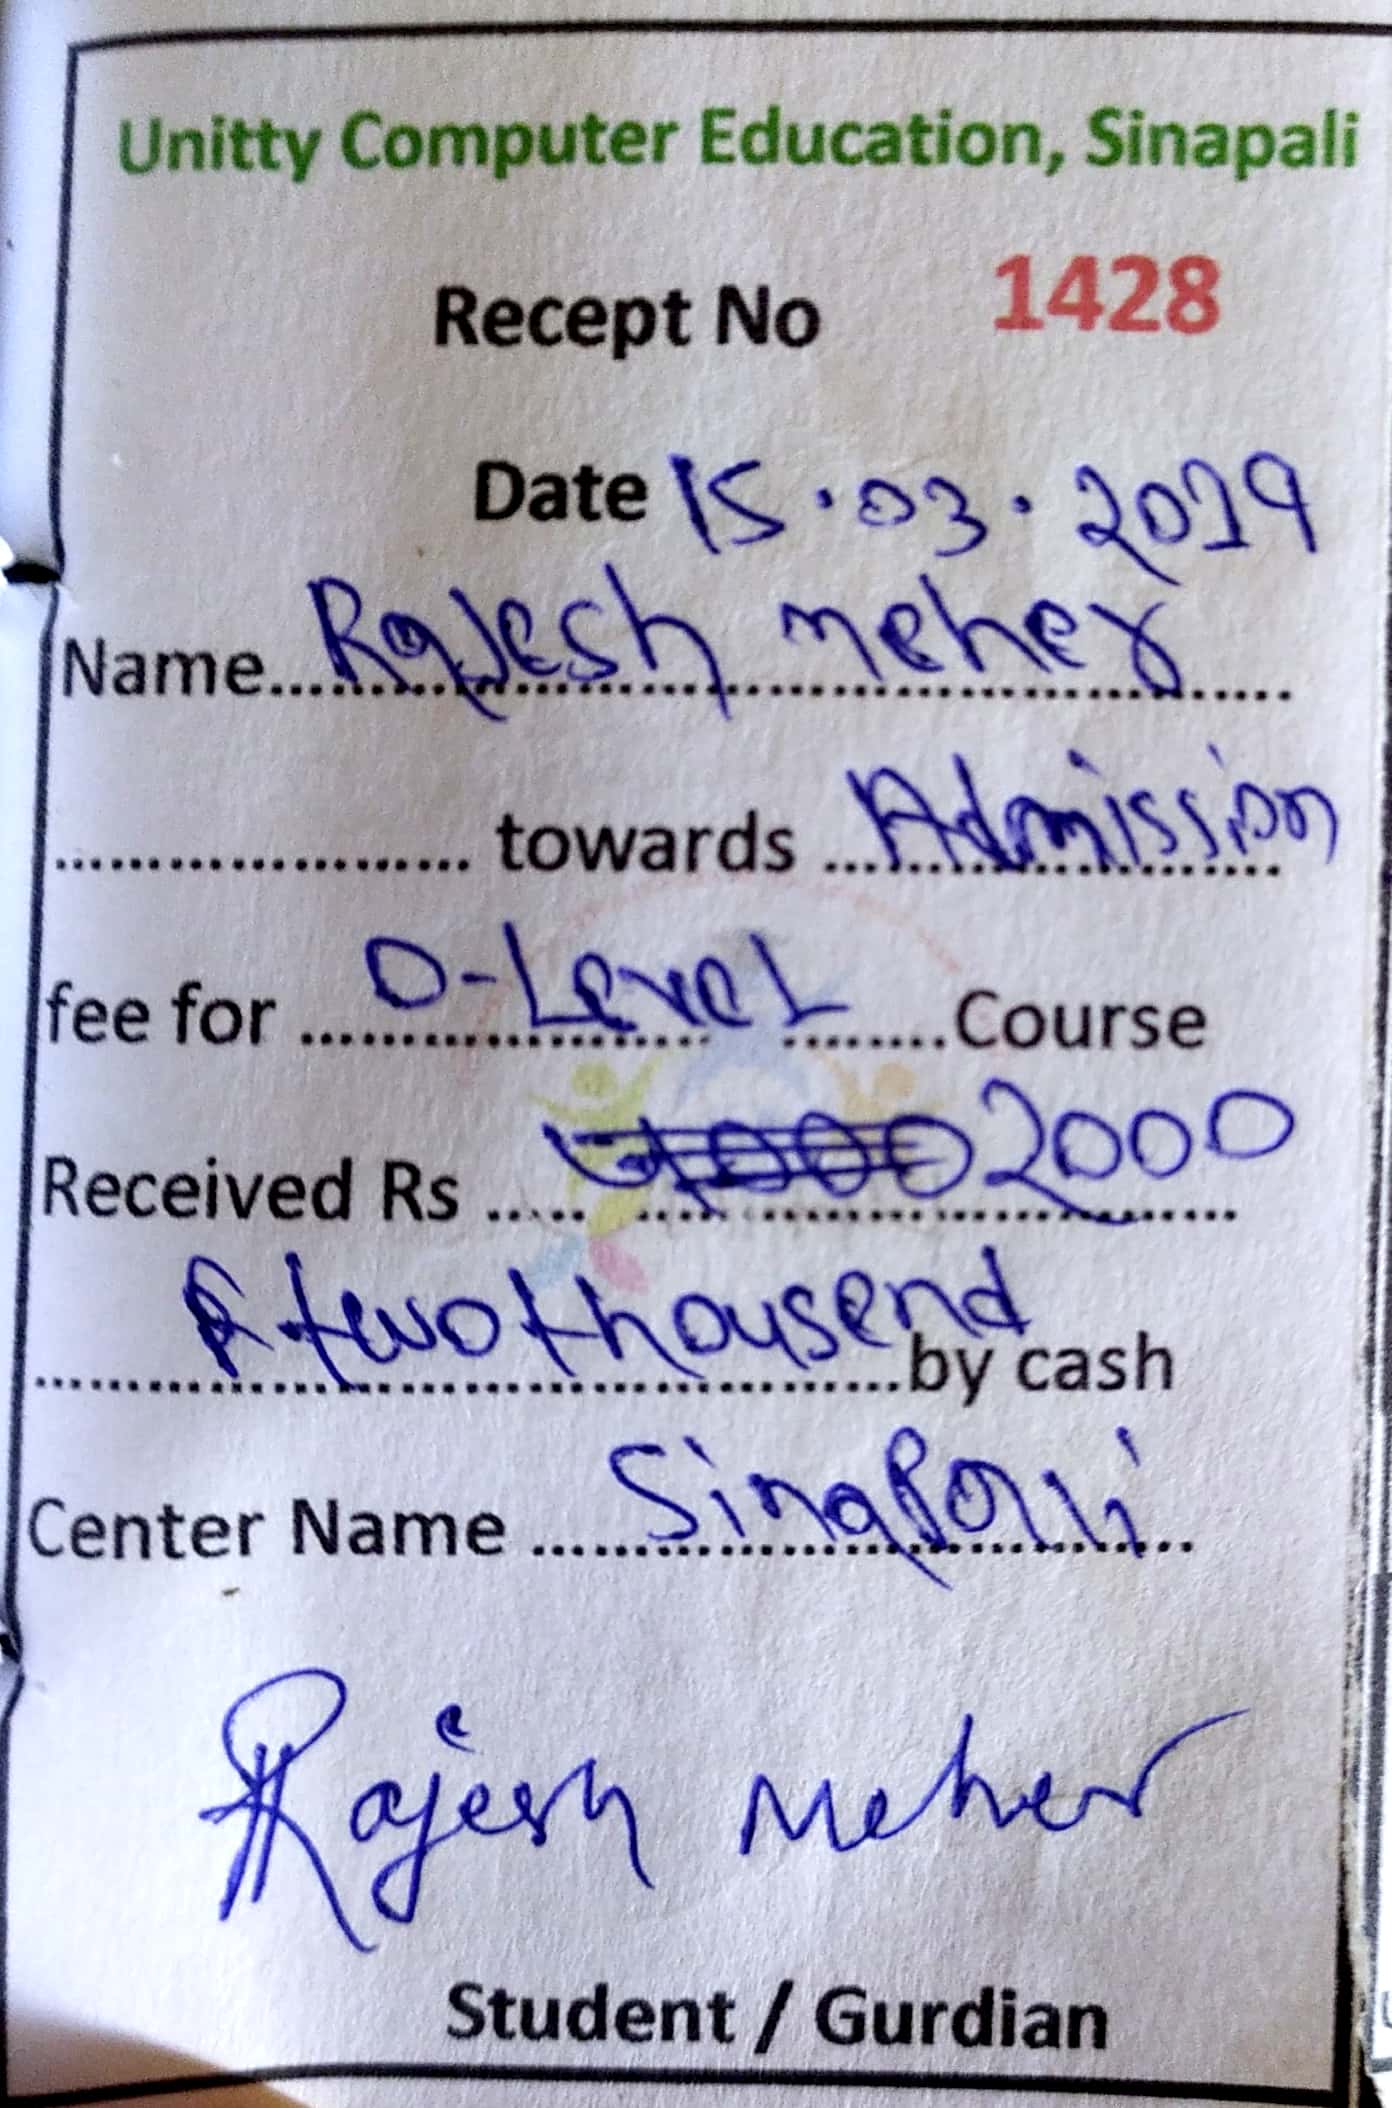 Unitty Computer Education, Sinapali
Recept No 1428
Date 15.03.2019
Name....Rajesh meher....
.................... towards ...Admission...
fee for ...O-Level........Course
Received Rs ..... 2000
twothousend by cash
Center Name ...Sinapali...
Rajesh Meher
Student / Gurdian